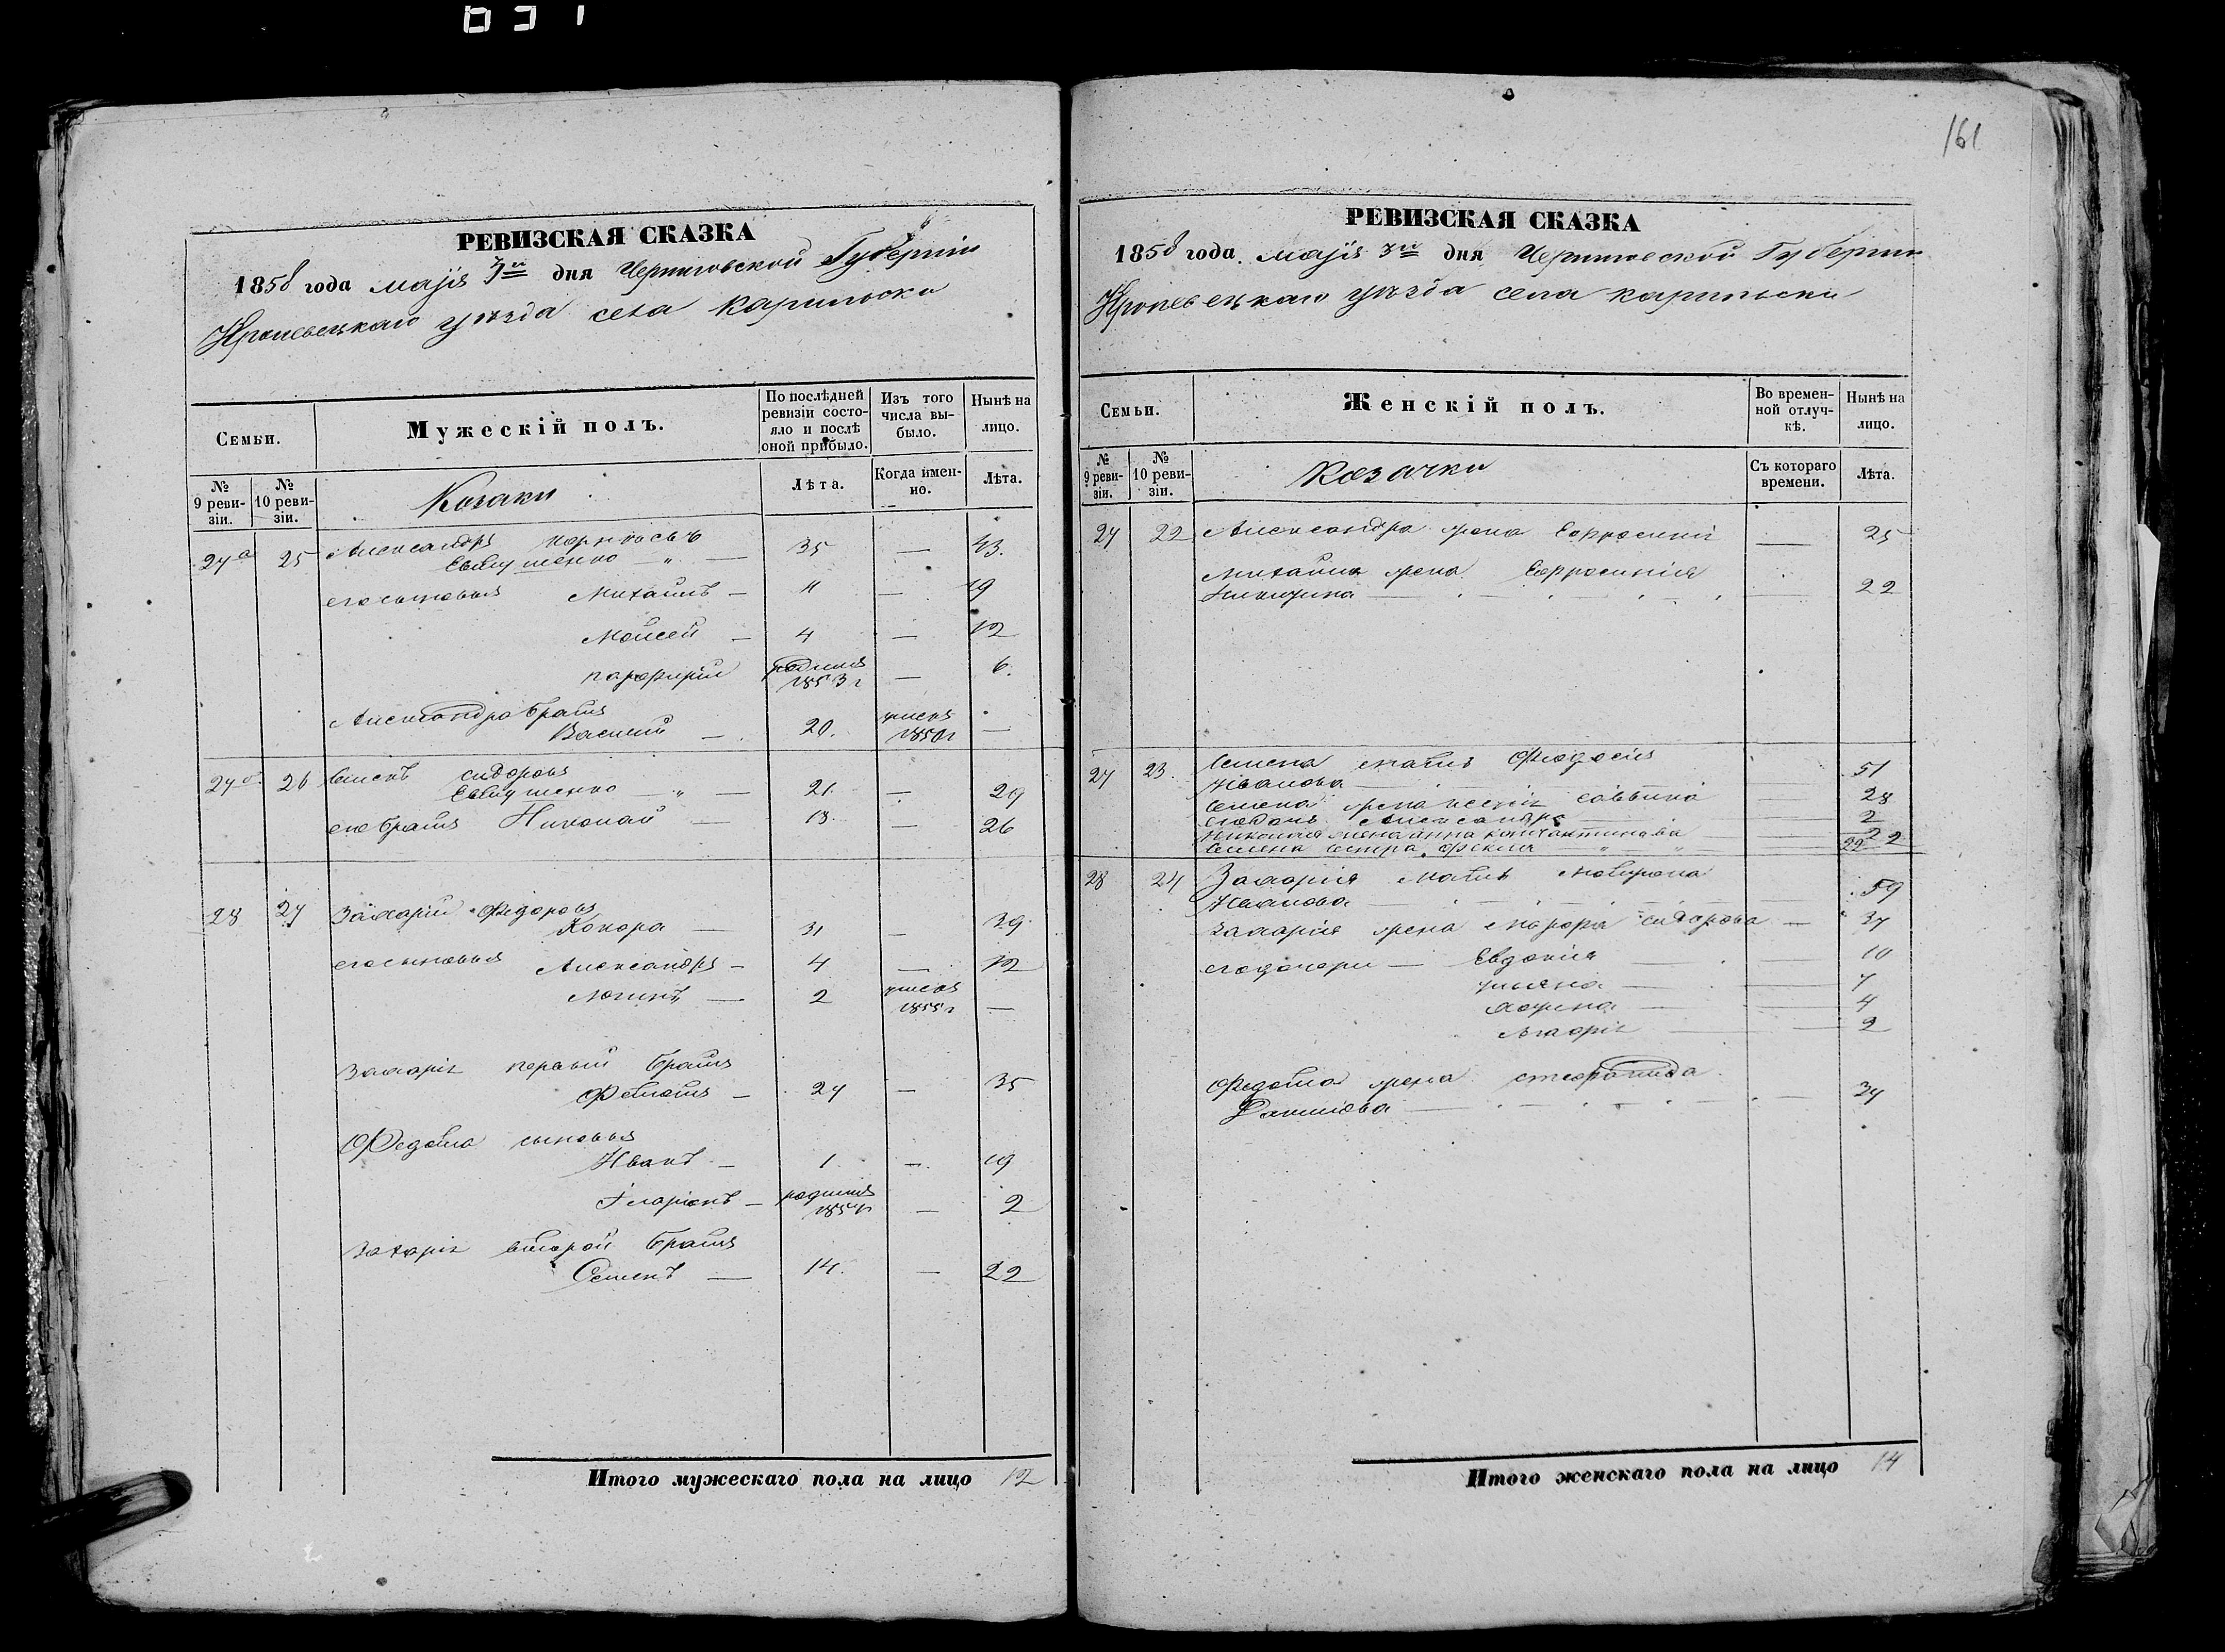 161
РЕВИЗСКАЯ СКАЗКА
1858 года маїя 3го дня Черниговской Губерніи
Кролевецкаго уѣзда села Карыльски
Семьи.
Мужескій полъ.
По послѣдней ревизіи состояло и послѣ оной прибыло.
Изъ того числа выбыло.
Нынѣ на лицо.
№ 9 ревизіи.
№ 10 ревизіи.
Козаки
Лѣта.
Когда именно.
Лѣта.
27а 25 Александръ
Евтушенко — 35 — 43.
его сыновья Михаилъ — 11 — 19
Моисей — 4 — 12
Парфирій родился 1853 г — 6.
Александра братъ
Василий — 20. умеръ 1850 г —
27 26 Семенъ Сидоровъ
Евтушенко — 21 — 29
его братъ Николай — 18 — 26
28 27 Захарій Федоровъ
Кокора — 31 — 39.
его сыновья Александръ — 4 — 12
Логинъ — 2 умеръ 1855 г —
Захарія первый братъ
Федотъ — 27 — 35
Федота сыновья
Иванъ — 1 —
Іларіонъ — родился — 2
Захарія второй братъ
Семенъ — 14. — 22
Итого мужескаго пола на лицо 12
РЕВИЗСКАЯ СКАЗКА
1858 года маїя 3го дня Черниговской Губерніи
Кролевецкаго уѣзда села Карыльски
Семьи.
Женскій полъ.
Во временной отлучкѣ.
Нынѣ на лицо.
№ 9 ревизіи.
№ 10 ревизіи.
Козачки
Съ котораго времени.
Лѣта.
27 22 Александра жена Ефросинія — 25
Михаила жена Ефросинія
— 22
27 23. Семена мать Феодосія
Иванова — 51
Семена жена Ксенія Саввина — 28
его дочь Александра — 2
Николая жена Анна Константинова — 22
Семена сестра Фекла — 22
28 24 Захарія мать Матрона
Иванова — 59
Захарія жена Марфа Сидорова — 37
его дочери — Евдокія — 10
Ульяна — 7
— 4
Марія — 2
Федота жена Степанида
Данилова — 34
Итого женскаго пола на лицо 14